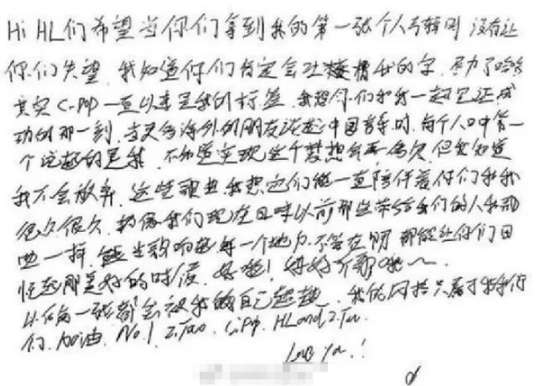 Hi HL们希望当你们拿到我的第一张个人专辑时 没有让
你们失望. 我知道你们肯定会吐槽我的字. 尽力了哈哈
其实 C-pop 一直以来是我的标签. 我想你们和我一起见证成
功的那一刻. 当更多海外的朋友谈起中国音乐时. 每个人口中第一
个说起的是我. 不知道实现这个梦想我要多久 但我知道
我不会放弃. 这些歌曲我想它们能一直陪伴着你们和我
很久很久. 就像我们现在回味以前那些带给我们的人和歌
曲一样. 能 响起每一个地方. 不管在哪 都能让你们回
忆起那美好的时候. 好啦! 好好 哦~
以后每一张都会被我的自己超越. 我的 只属于我和你
们. 加油. No.1 Z.Tao. C-pop. HL and Z.Tao.
Love You.!